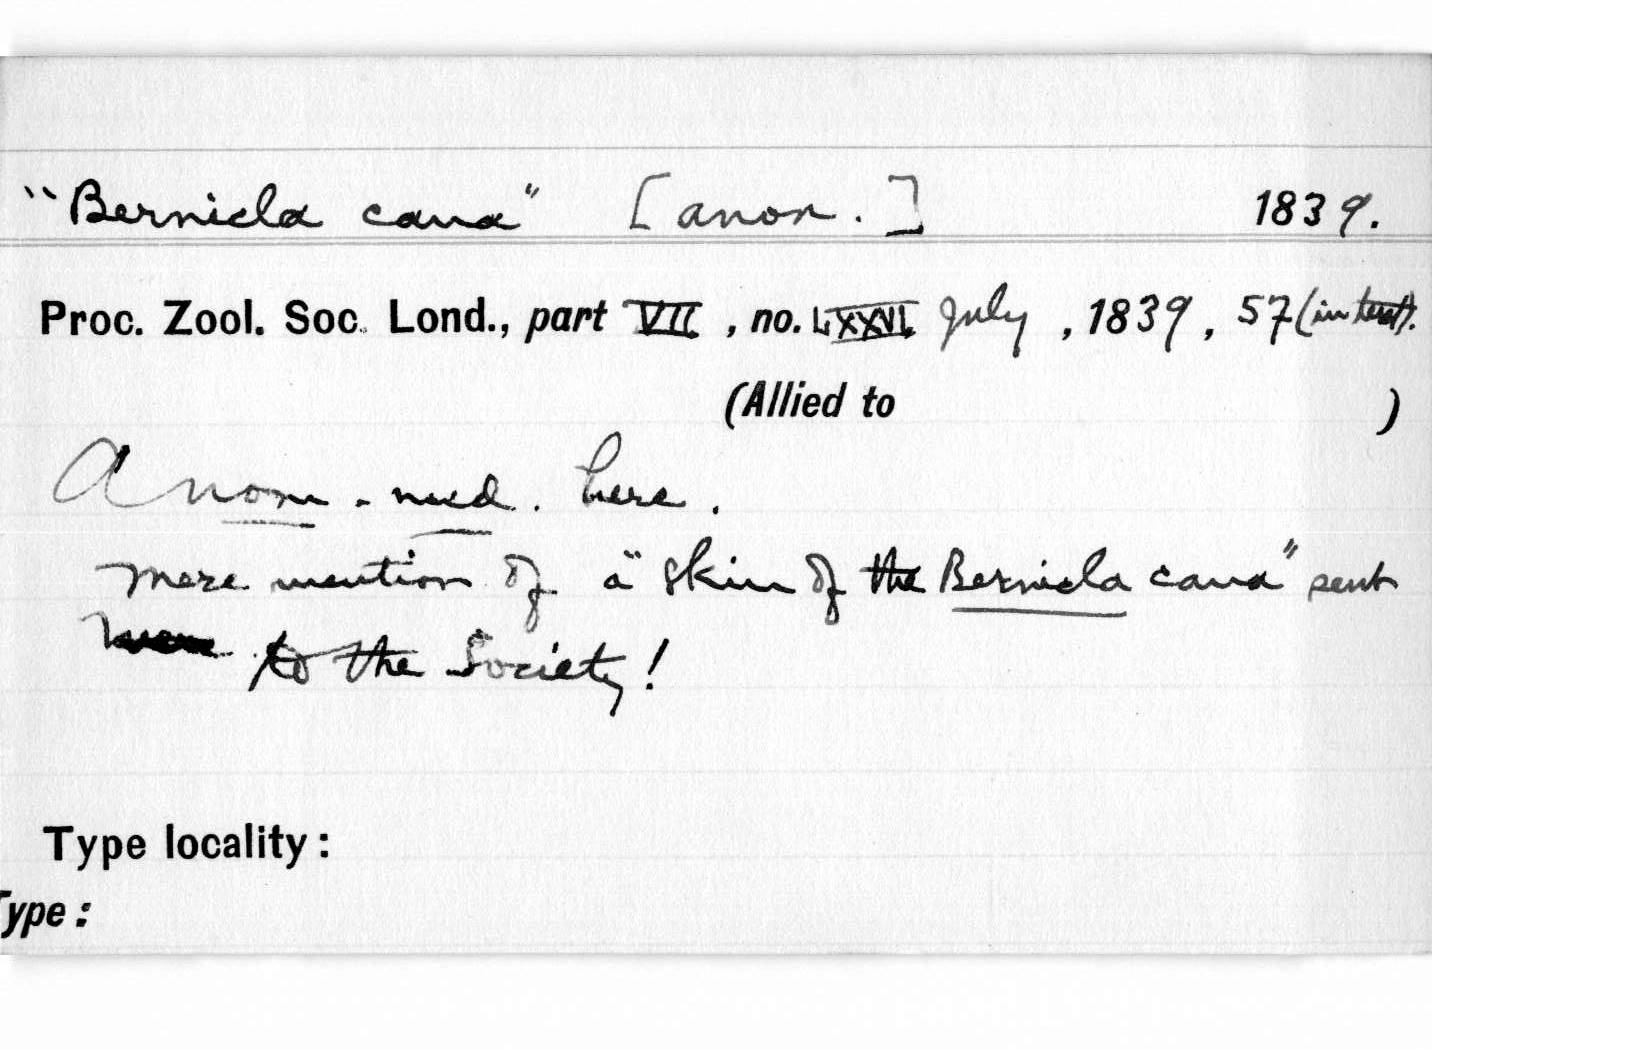 "Bernicla cana" [anon.] 1839.
Proc. Zool. Soc. Lond., part VII, no. LXXVI, July, 1839, 57 (in text).
(Allied to )
A nom. nud. here.
mere mention of "a skin of the Bernicla cana" sent
to the Society!
Type locality:
Type: